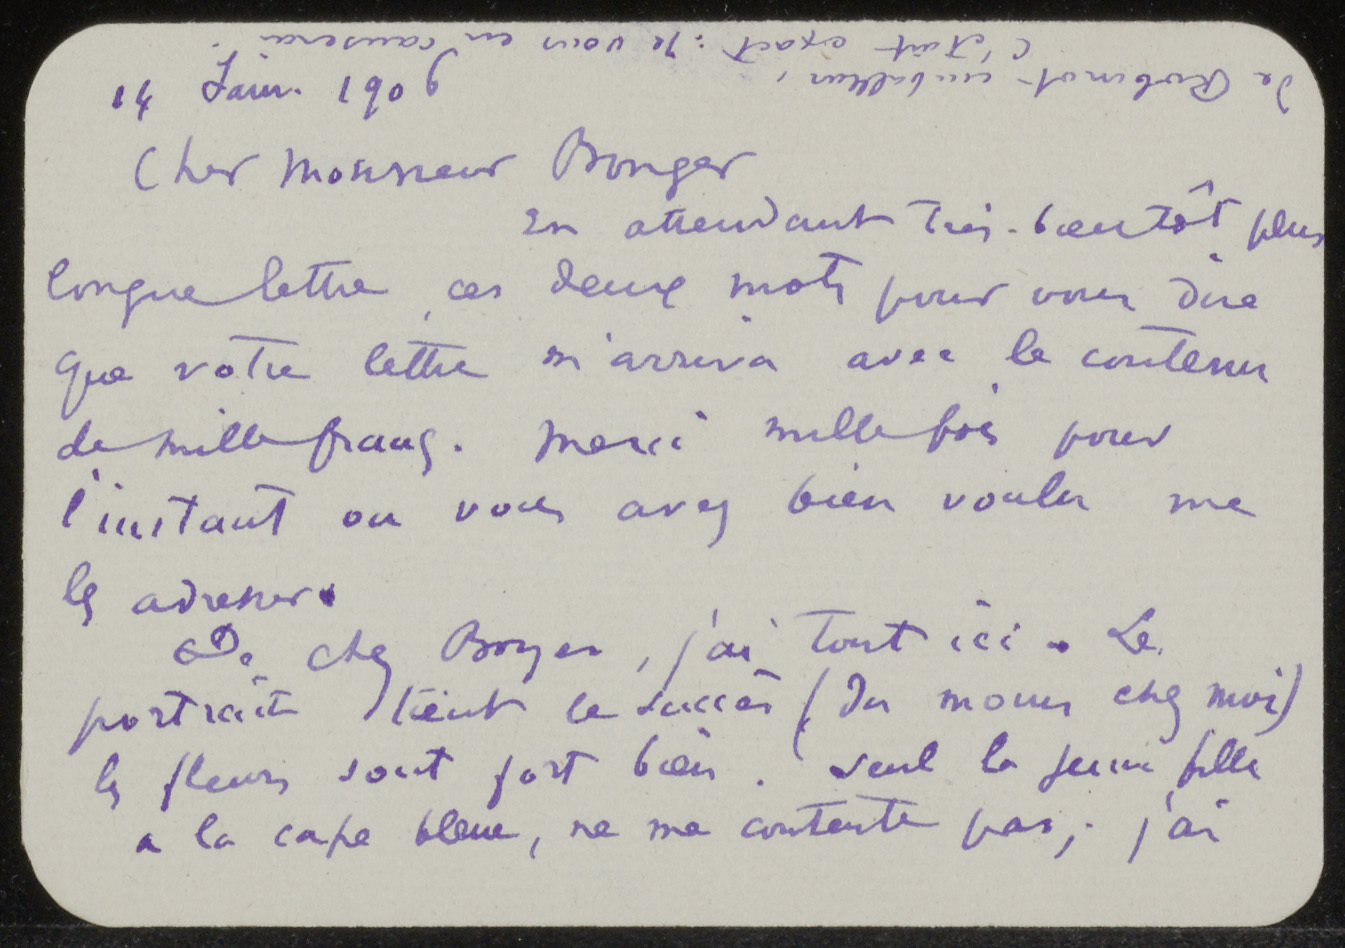 14 Janv. 1906
Cher Monsieur Bonger
En attendant très-bientôt plus
longue lettre, ces deux mots pour vous dire
que votre lettre m'arriva avec le contenu
de mille francs. Merci mille fois pour
l'instant ou vous avez bien voulu me
les adresser.
De chez Boyer, j'ai tout ici. Le
portrait tient le succès (du moins chez moi)
les fleurs sont fort bien. Seul la jeune fille
a la cape bleue, ne me contente pas; j'ai
de Robinot emballeur,
C'était exact: je vous en causerai.